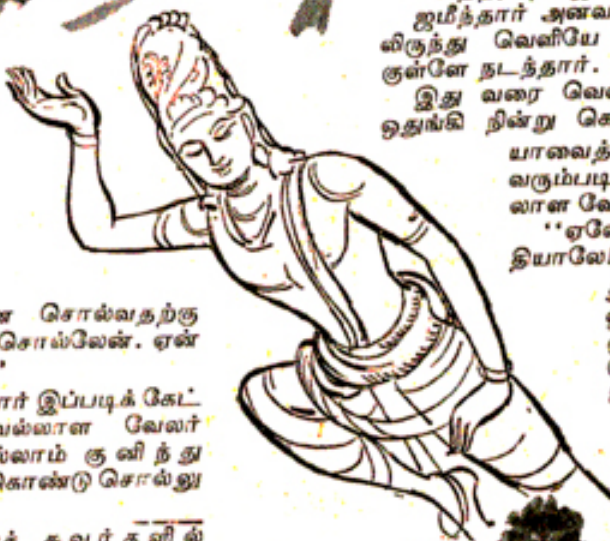 ஜமீந்தார் அனவ
லிருந்து வெளியே
குள்ளே நடந்தார்.
இது வரை வெ
ஒதுங்கி நின்று கெ
யாவைத்
வரும்படி
லாள வே
"ஏலே
தியாலே
சொல்வதற்கு
சொல்லேன். ஏன்
ார் இப்படிக் கேட்
வல்லாள வேலர்
ல்லாம் குனிந்து
கொண்டு சொல்லு